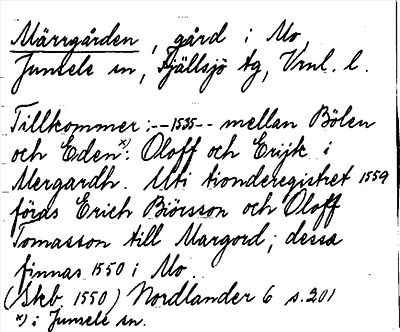 Märrgården, gård i Mo
Junsele sn, Fjällsjö tg, Vrnl. l.
Tillkommer: -- 1535 -- mellan Bölen
och Eden x): Oloff och Erijk i
Mergardh. Uti tionderegistret 1559
föras Erich Biörsson och Oloff
Tomasson till Margord; dessa
finnas 1550 i Mo.
(Skb. 1550) Nordlander 6 s. 201
x) i Junsele sn.